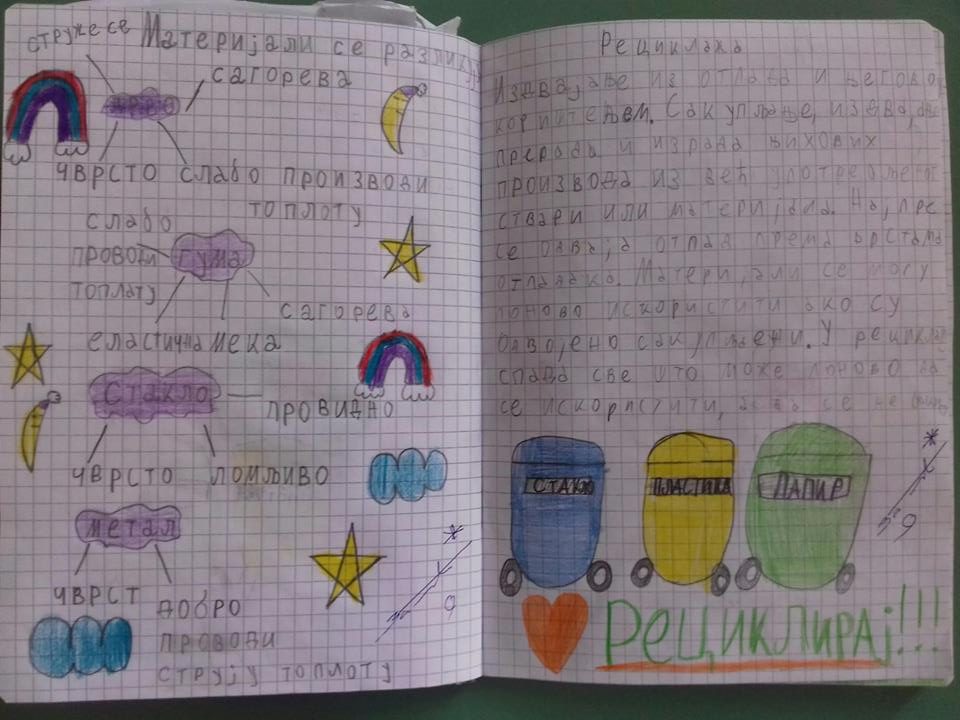 Материјали се разликују
стружеСе
сагорева
дрво
чврсто слабо производи
топлоту
слабо
проводи
гума
топлату
сагорева
еластична мека
Стакло
провидно
чврсто ломљиво
метал
чврст добро
проводи
струју топлоту
9
Рециклажа
Издвајање из отпада и његово
корпитењем. Сакупљање, издвајање
прерада и израда њихових
производа из већ
ствари или материјала.
се одваја отпад према врстама
отпадака. Материјали се могу
поново искористити ако су
одвојено сакупљени. У
спада све што може поново да
се искорпстити, а да се не
9
СТАКЛО
ПЛАСТИКА
ПАПИР
Рециклирај!!!